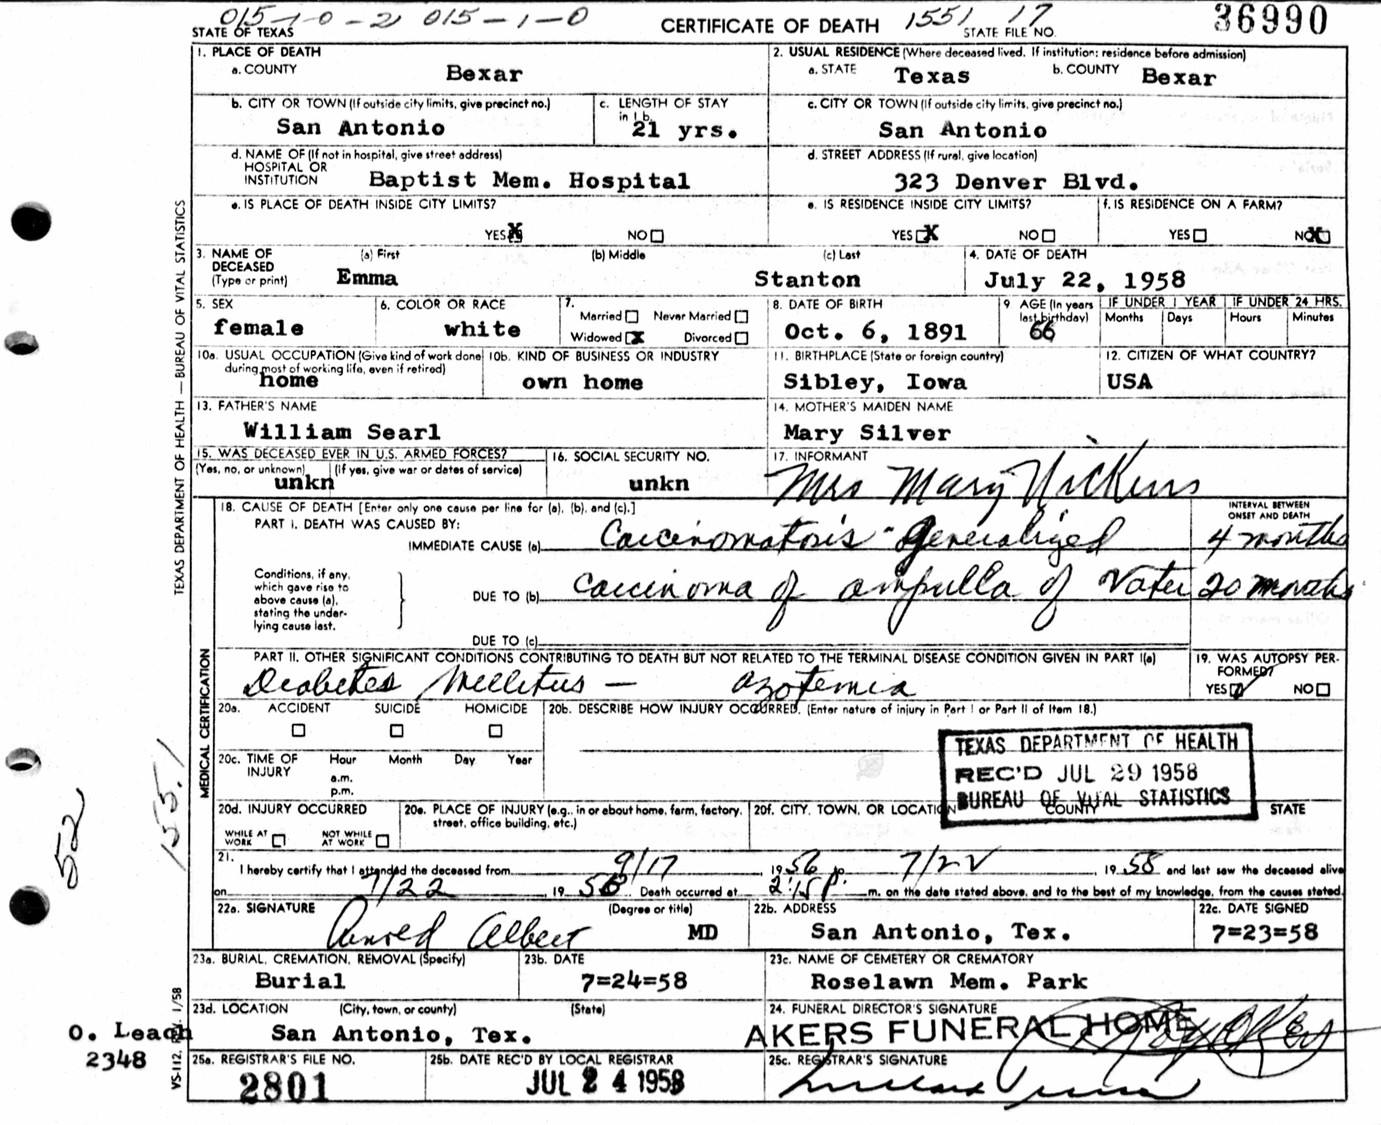 015-1-0-2 015-1-0 CERTIFICATE OF DEATH 1551 17 36990
STATE OF TEXAS STATE FILE NO.
1. PLACE OF DEATH 2. USUAL RESIDENCE (Where deceased lived. If institution: residence before admission)
a. COUNTY Bexar a. STATE Texas b. COUNTY Bexar
b. CITY OR TOWN (If outside city limits, give precinct no.) c. LENGTH OF STAY in 1 b. c. CITY OR TOWN (If outside city limits, give precinct no.)
San Antonio 21 yrs. San Antonio
d. NAME OF (If not in hospital, give street address) d. STREET ADDRESS (If rural, give location)
HOSPITAL OR
INSTITUTION Baptist Mem. Hospital 323 Denver Blvd.
e. IS PLACE OF DEATH INSIDE CITY LIMITS? e. IS RESIDENCE INSIDE CITY LIMITS? f. IS RESIDENCE ON A FARM?
YES X NO YES X NO YES NO X
3. NAME OF DECEASED (Type or print) (a) First (b) Middle (c) Last 4. DATE OF DEATH
Emma Stanton July 22, 1958
5. SEX 6. COLOR OR RACE 7. Married Never Married 8. DATE OF BIRTH 9. AGE (In years last birthday) IF UNDER 1 YEAR IF UNDER 24 HRS.
Months Days Hours Minutes
female white Widowed X Divorced Oct. 6, 1891 66
10a. USUAL OCCUPATION (Give kind of work done during most of working life, even if retired) 10b. KIND OF BUSINESS OR INDUSTRY 11. BIRTHPLACE (State or foreign country) 12. CITIZEN OF WHAT COUNTRY?
home own home Sibley, Iowa USA
13. FATHER'S NAME 14. MOTHER'S MAIDEN NAME
William Searl Mary Silver
15. WAS DECEASED EVER IN U.S. ARMED FORCES? 16. SOCIAL SECURITY NO. 17. INFORMANT
(Yes, no, or unknown) (If yes, give war or dates of service)
unkn unkn Mrs Mary
18. CAUSE OF DEATH [Enter only one cause per line for (a), (b), and (c).] INTERVAL BETWEEN ONSET AND DEATH
PART I. DEATH WAS CAUSED BY:
IMMEDIATE CAUSE (a) Carcinomatosis - Generalized 4 months
Conditions, if any,
which gave rise to
above cause (a),
stating the under-
lying cause last.
DUE TO (b) Carcinoma of ampulla of Vater 20 months
DUE TO (c)
PART II. OTHER SIGNIFICANT CONDITIONS CONTRIBUTING TO DEATH BUT NOT RELATED TO THE TERMINAL DISEASE CONDITION GIVEN IN PART I(a) 19. WAS AUTOPSY PERFORMED?
Diabetes Mellitus - azotemia YES NO
20a. ACCIDENT SUICIDE HOMICIDE 20b. DESCRIBE HOW INJURY OCCURRED. (Enter nature of injury in Part I or Part II of Item 18.)
20c. TIME OF INJURY Hour Month Day Year
a.m.
p.m.
TEXAS DEPARTMENT OF HEALTH
REC'D JUL 29 1958
BUREAU OF VITAL STATISTICS
20d. INJURY OCCURRED 20e. PLACE OF INJURY (e.g., in or about home, farm, factory, street, office building, etc.) 20f. CITY, TOWN, OR LOCATION COUNTY STATE
WHILE AT WORK NOT WHILE AT WORK
21. I hereby certify that I attended the deceased from 9/17, 1956 to 7/22, 1958 and last saw the deceased alive
on 7/22, 1958 Death occurred at 2:15 P. m. on the date stated above, and to the best of my knowledge, from the causes stated.
22a. SIGNATURE (Degree or title) 22b. ADDRESS 22c. DATE SIGNED
Albert MD San Antonio, Tex. 7=23=58
23a. BURIAL, CREMATION, REMOVAL (Specify) 23b. DATE 23c. NAME OF CEMETERY OR CREMATORY
Burial 7=24=58 Roselawn Mem. Park
23d. LOCATION (City, town, or county) (State) 24. FUNERAL DIRECTOR'S SIGNATURE
San Antonio, Tex. AKERS FUNERAL HOME
25a. REGISTRAR'S FILE NO. 25b. DATE REC'D BY LOCAL REGISTRAR 25c. REGISTRAR'S SIGNATURE
2801 JUL 24 1958
TEXAS DEPARTMENT OF HEALTH — BUREAU OF VITAL STATISTICS
MEDICAL CERTIFICATION
VS-112. REV. 1/58
155.1
52
O. Leach
2348